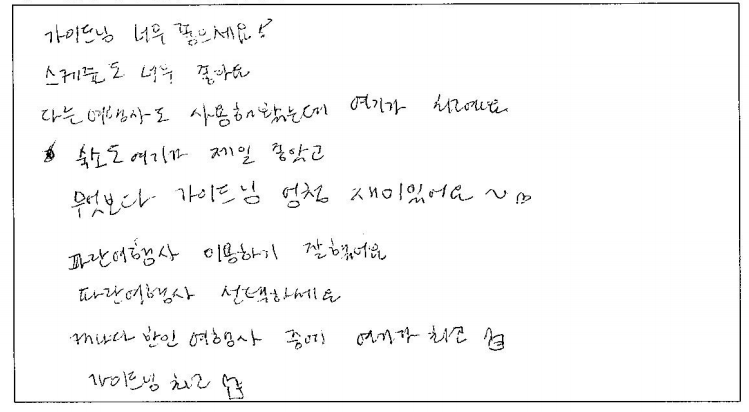 가이드님 너무 좋으세요!
스케쥴도 너무 좋아요
다른 여행사도 사용해 봤는데 여기가 최고예요
숙소도 여기가 제일 좋았고
무엇보다 가이드님 엄청 재미있어요 ~
파란여행사 이용하기 잘했어요
파란여행사 선택하세요
캐나다 한인 여행사 중에 여기가 최고
가이드님 최고